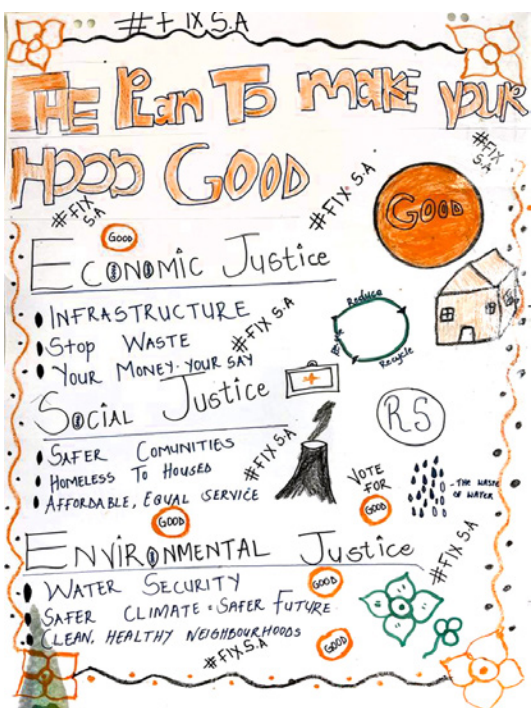 #FIX S.A
THE PLAN TO MAKE YOUR
HOOD GOOD
#FIX S.A
#FIX S.A
#FIX S.A
GOOD
GOOD
ECONOMIC JUSTICE
• INFRASTRUCTURE
• STOP WASTE
• YOUR MONEY. YOUR SAY
#FIX S.A
Reduce
Recycle
SOCIAL JUSTICE
RS
• SAFER COMUNITIES
• HOMELESS TO HOUSED
• AFFORDABLE, EQUAL SERVICE
#FIX S.A
VOTE
FOR
GOOD
- THE WASTE
OF WATER
GOOD
ENVIRONMENTAL JUSTICE
#FIX S.A
• WATER SECURITY
• SAFER CLIMATE = SAFER FUTURE
• CLEAN, HEALTHY NEIGHBOURHOODS
GOOD
GOOD
#FIX S.A